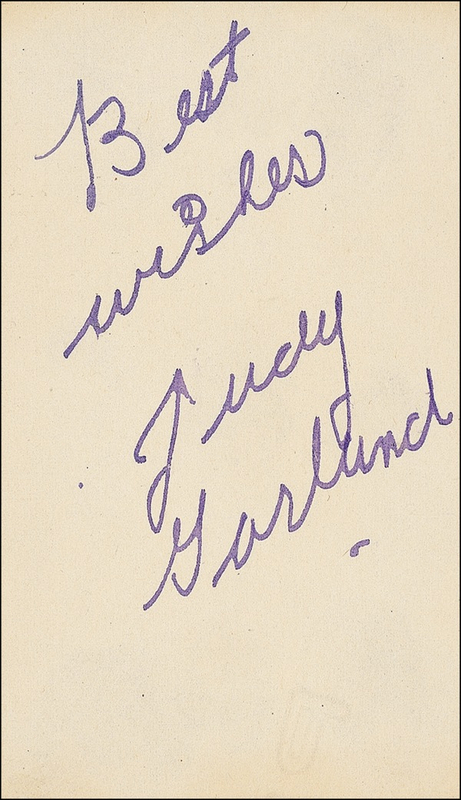 Best
wishes
Judy
Garland